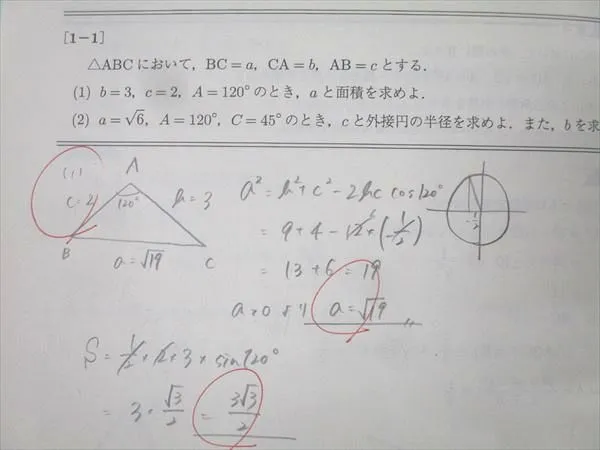 [1-1]
△ABCにおいて，BC = a，CA = b，AB = c とする．
(1) b = 3，c = 2，A = 120° のとき，a と面積を求めよ．
(2) a = √6，A = 120°，C = 45° のとき，c と外接円の半径を求めよ．また，b を求
(1)
A
c = 2
120°
b = 3
B
a = √19
C
a² = b² + c² - 2bc cos120°
= 9 + 4 - 12 × (-1/2)
6
= 13 + 6 = 19
a > 0 より a = √19
-1/2
S = 1/2 × 2 × 3 × sin120°
= 3 × √3/2 = 3√3/2